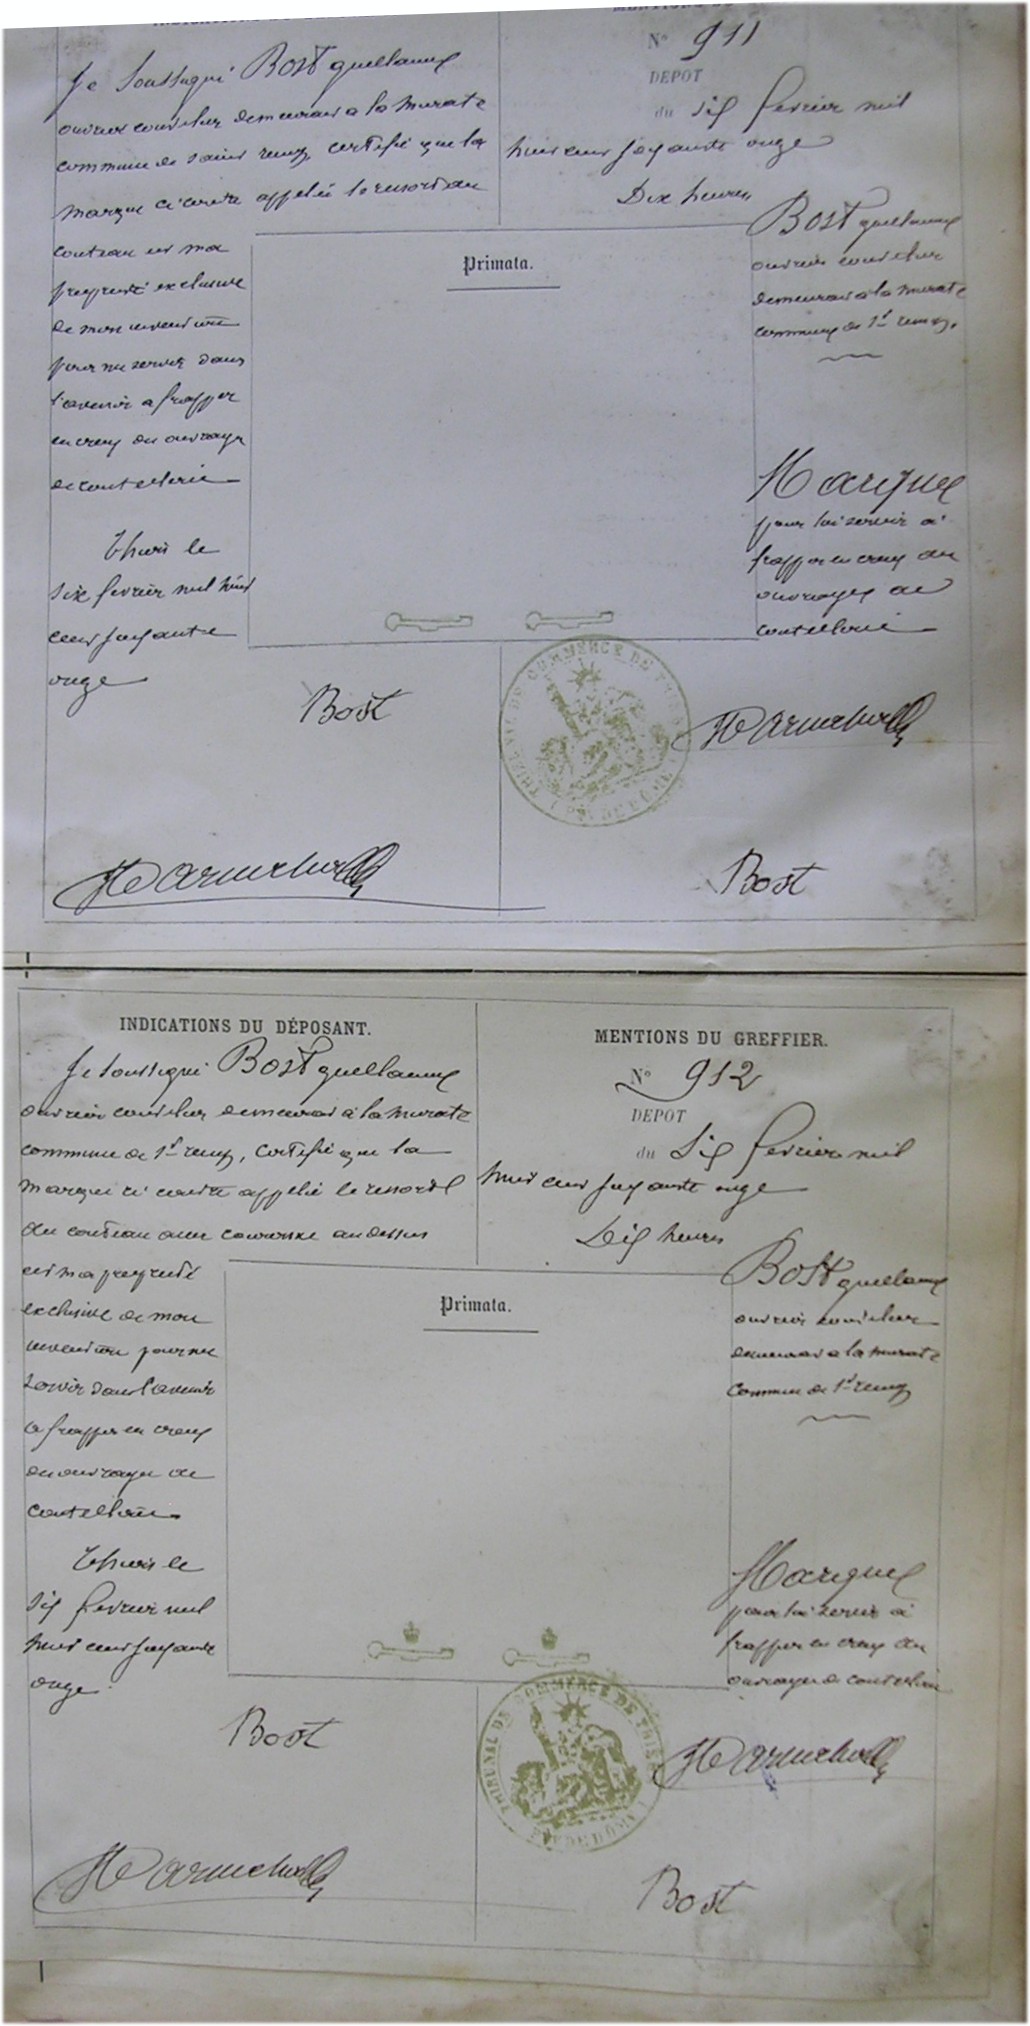 Je soussigné Bost guillaume
ouvrier coutelier demeurant a la murate
commune de saint remy, certifié que la
marque ci contre appelée le ressort du
couteau est ma
propriété exclusive
de mon invention
pour me servir dans
l'avenir a frapper
en creux des ouvrages
de coutellerie
Thiers le
six fevrier mil huit
cent soixante
onze
Bost
N° 911
DEPOT
du six fevrier mil
huit cent soixante onze
Dix heures
Primata.
Bost guillaume
ouvrier coutelier
demeurant a la murate
commune de St remy.
Marque
pour lui servir a
frapper en creux des
ouvrages de
coutellerie
TRIBUNAL DE COMMERCE DE THIERS
(PUY DE DÔME)
Bost
INDICATIONS DU DÉPOSANT.
Je soussigné Bost guillaume
ouvrier coutelier demeurant a la murate
commune de St remy, certifié que la
marque ci contre appelée le ressort
du couteau avec couronne au dessus
est ma propriété
exclusive de mon
invention pour me
servir dans l'avenir
a frapper en creux
des ouvrages de
coutellerie
Thiers le
six fevrier mil
huit cent soixante
onze
Bost
MENTIONS DU GREFFIER.
N° 912
DEPOT
du six fevrier mil
huit cent soixante onze
Dix heures
Primata.
Bost guillaume
ouvrier coutelier
demeurant a la murate
commune de St remy
Marque
pour lui servir a
frapper en creux des
ouvrages de coutellerie
TRIBUNAL DE COMMERCE DE THIERS
(PUY DE DÔME)
Bost